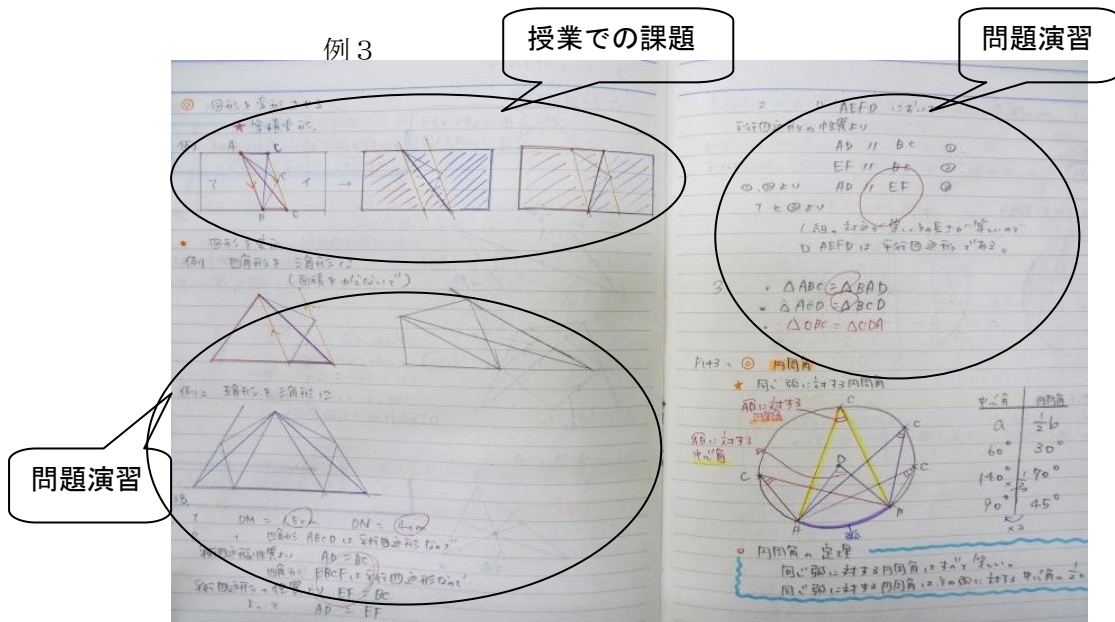 例３
授業での課題
問題演習
問題演習
◎ 図形を変形する
★ 等積変形。
例1
A C
ア イ
B C
• 図形を変形
例1 四角形を三角形に
(面積をかえないで)
例2 五角形を三角形に
1 OM = 1.5cm ON = 4cm
四角形 ABCD は平行四辺形なので
平行四辺形の性質より AD = BC
四角形 EBCF は平行四辺形なので
平行四辺形の性質より EF = BC
よって AD = EF
2 AEFD において
平行四辺形の性質より
AD // BC ①
EF // BC ②
①,②より AD // EF ③
アと③より
1組の対辺が等しくその長さが等しいので
□ AEFD は平行四辺形である。
3 • △ABC = △BAD
• △ACD = △BCD
• △OBC = △ODA
P143 ◎ 円周角
★ 同じ弧に対する円周角
ABに対する
円周角
ABに対する
中心角
C
C
C
C
O
A
B
弧
中心角 円周角
a 1/2 b
60° 30°
140° 70°
90° 45°
×1/2
×2
円周角の定理
同じ弧に対する円周角はすべて等しい。
同じ弧に対する円周角はその弧に対する中心角の1/2